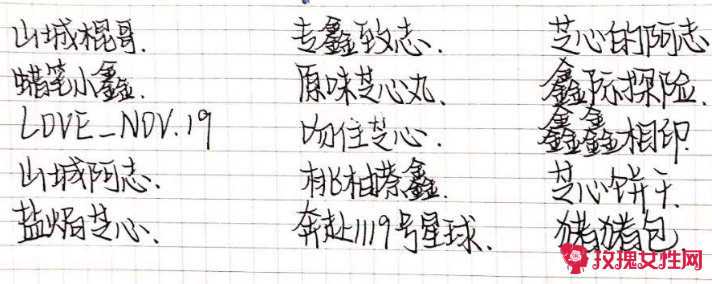 山城棍哥. 专鑫致志. 芝心的阿志
蜡笔小鑫. 原味芝心丸. 鑫际探险.
LOVE_NOV.19 吻住芝心. 鑫鑫相印.
山城阿志. 桃柚蓁鑫. 芝心饼干.
盐焗芝心. 奔赴1119号星球. 猪猪包
玫瑰女性网